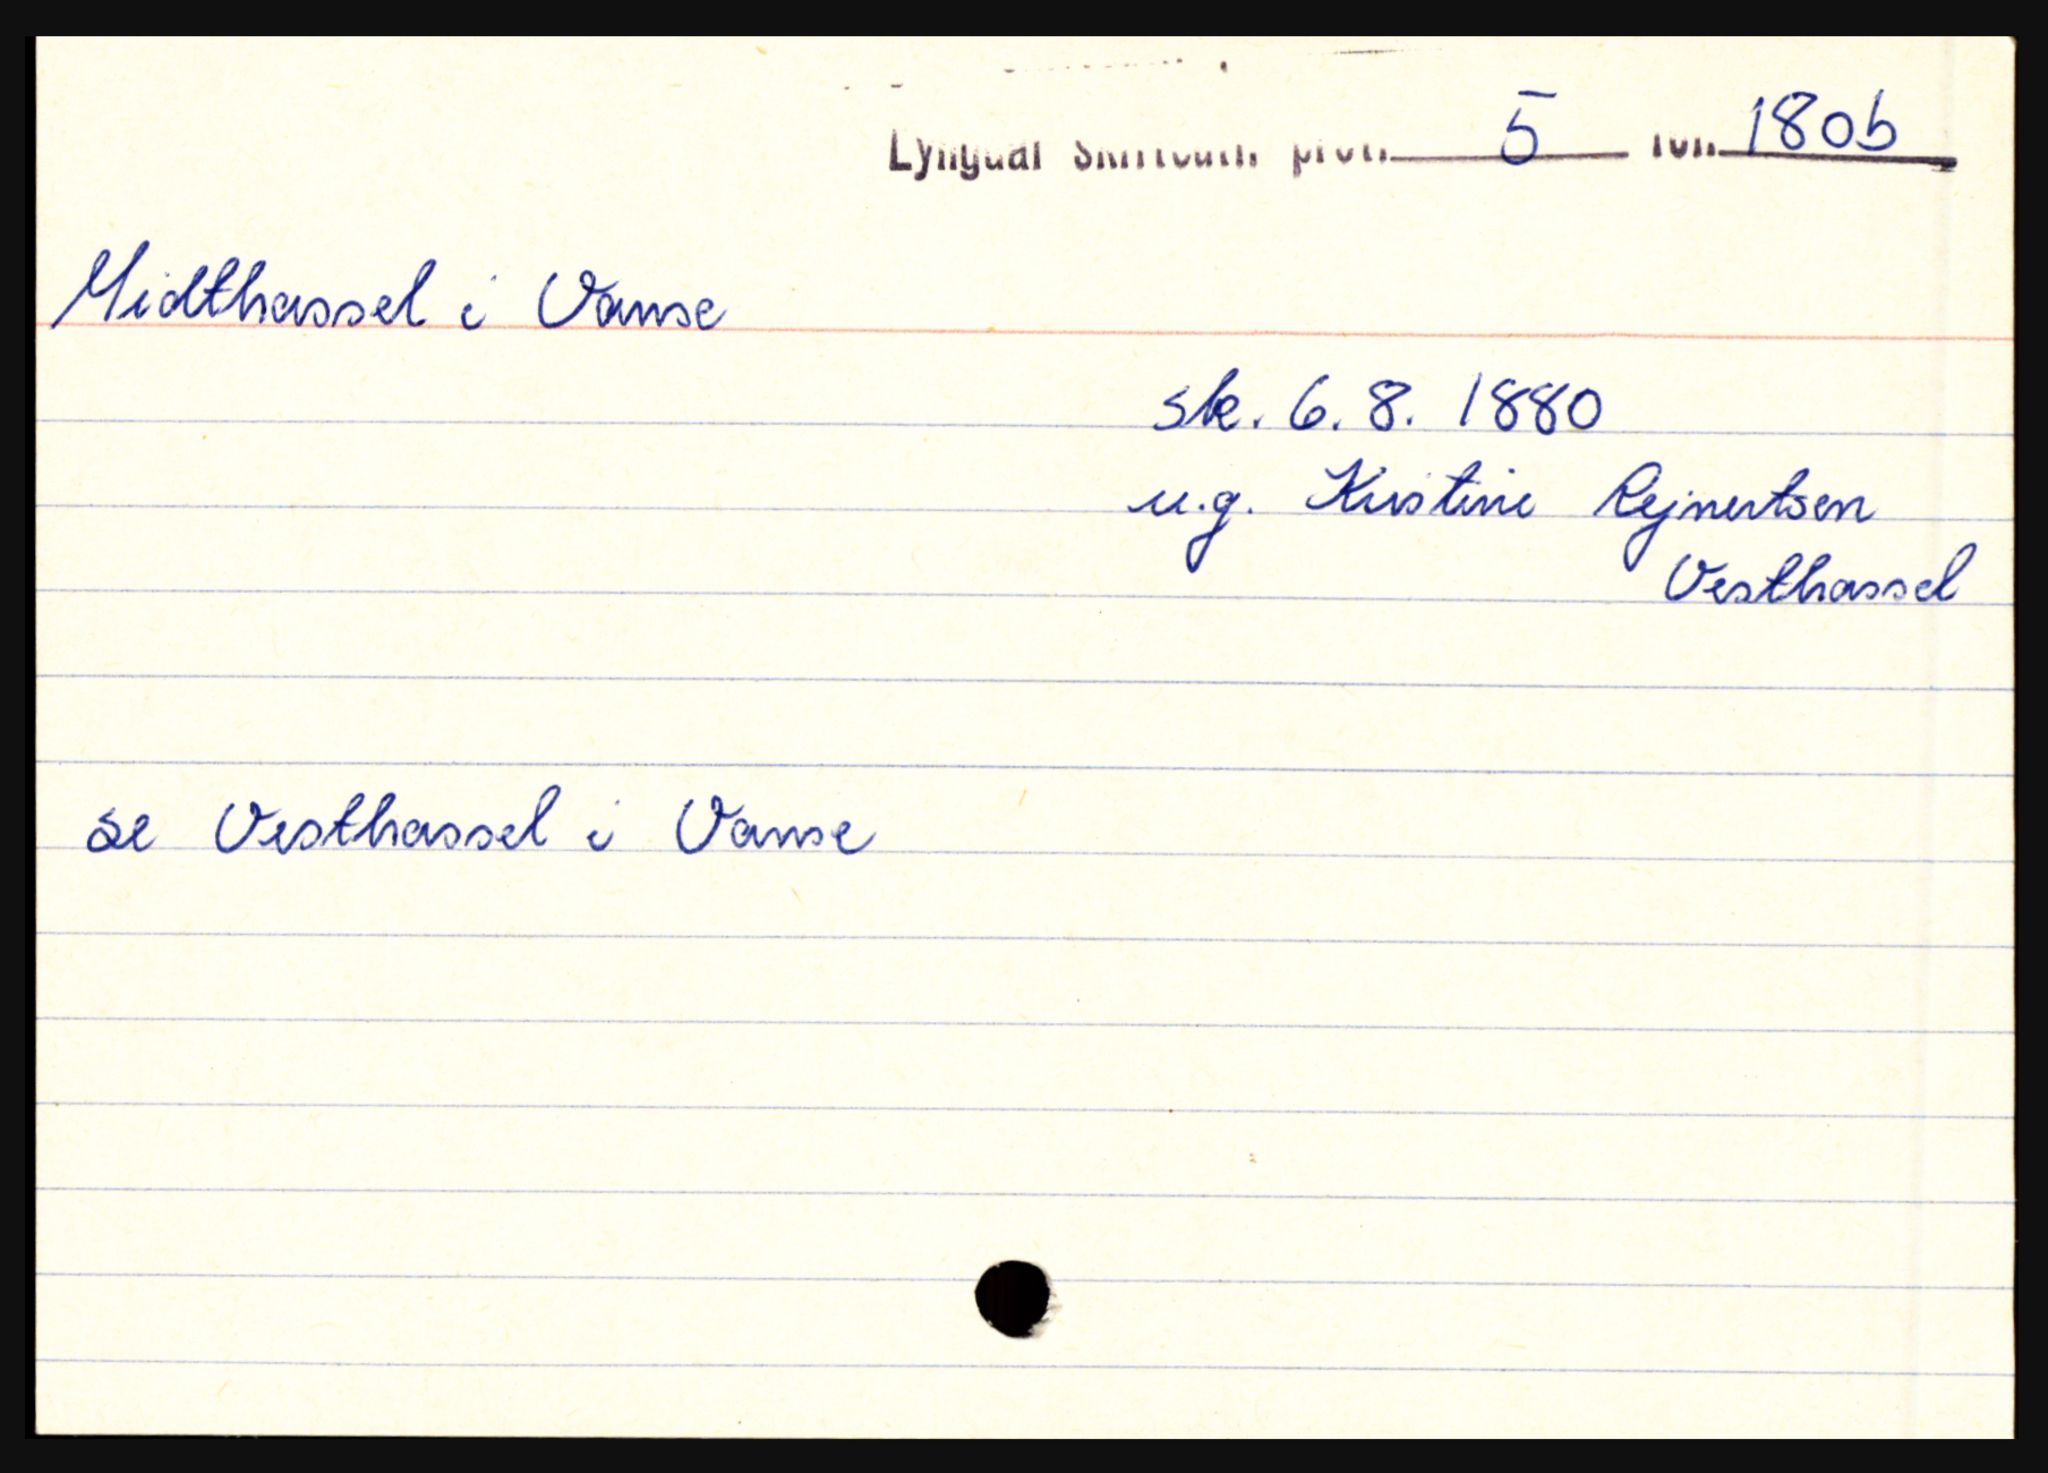 Lyngdal Skifteutl. prot. 5 fol. 180b
Midthassel i Vanse
sk. 6. 8. 1880
u.g. Kristine Rejnertsen
Vesthassel
se Vesthassel i Vanse